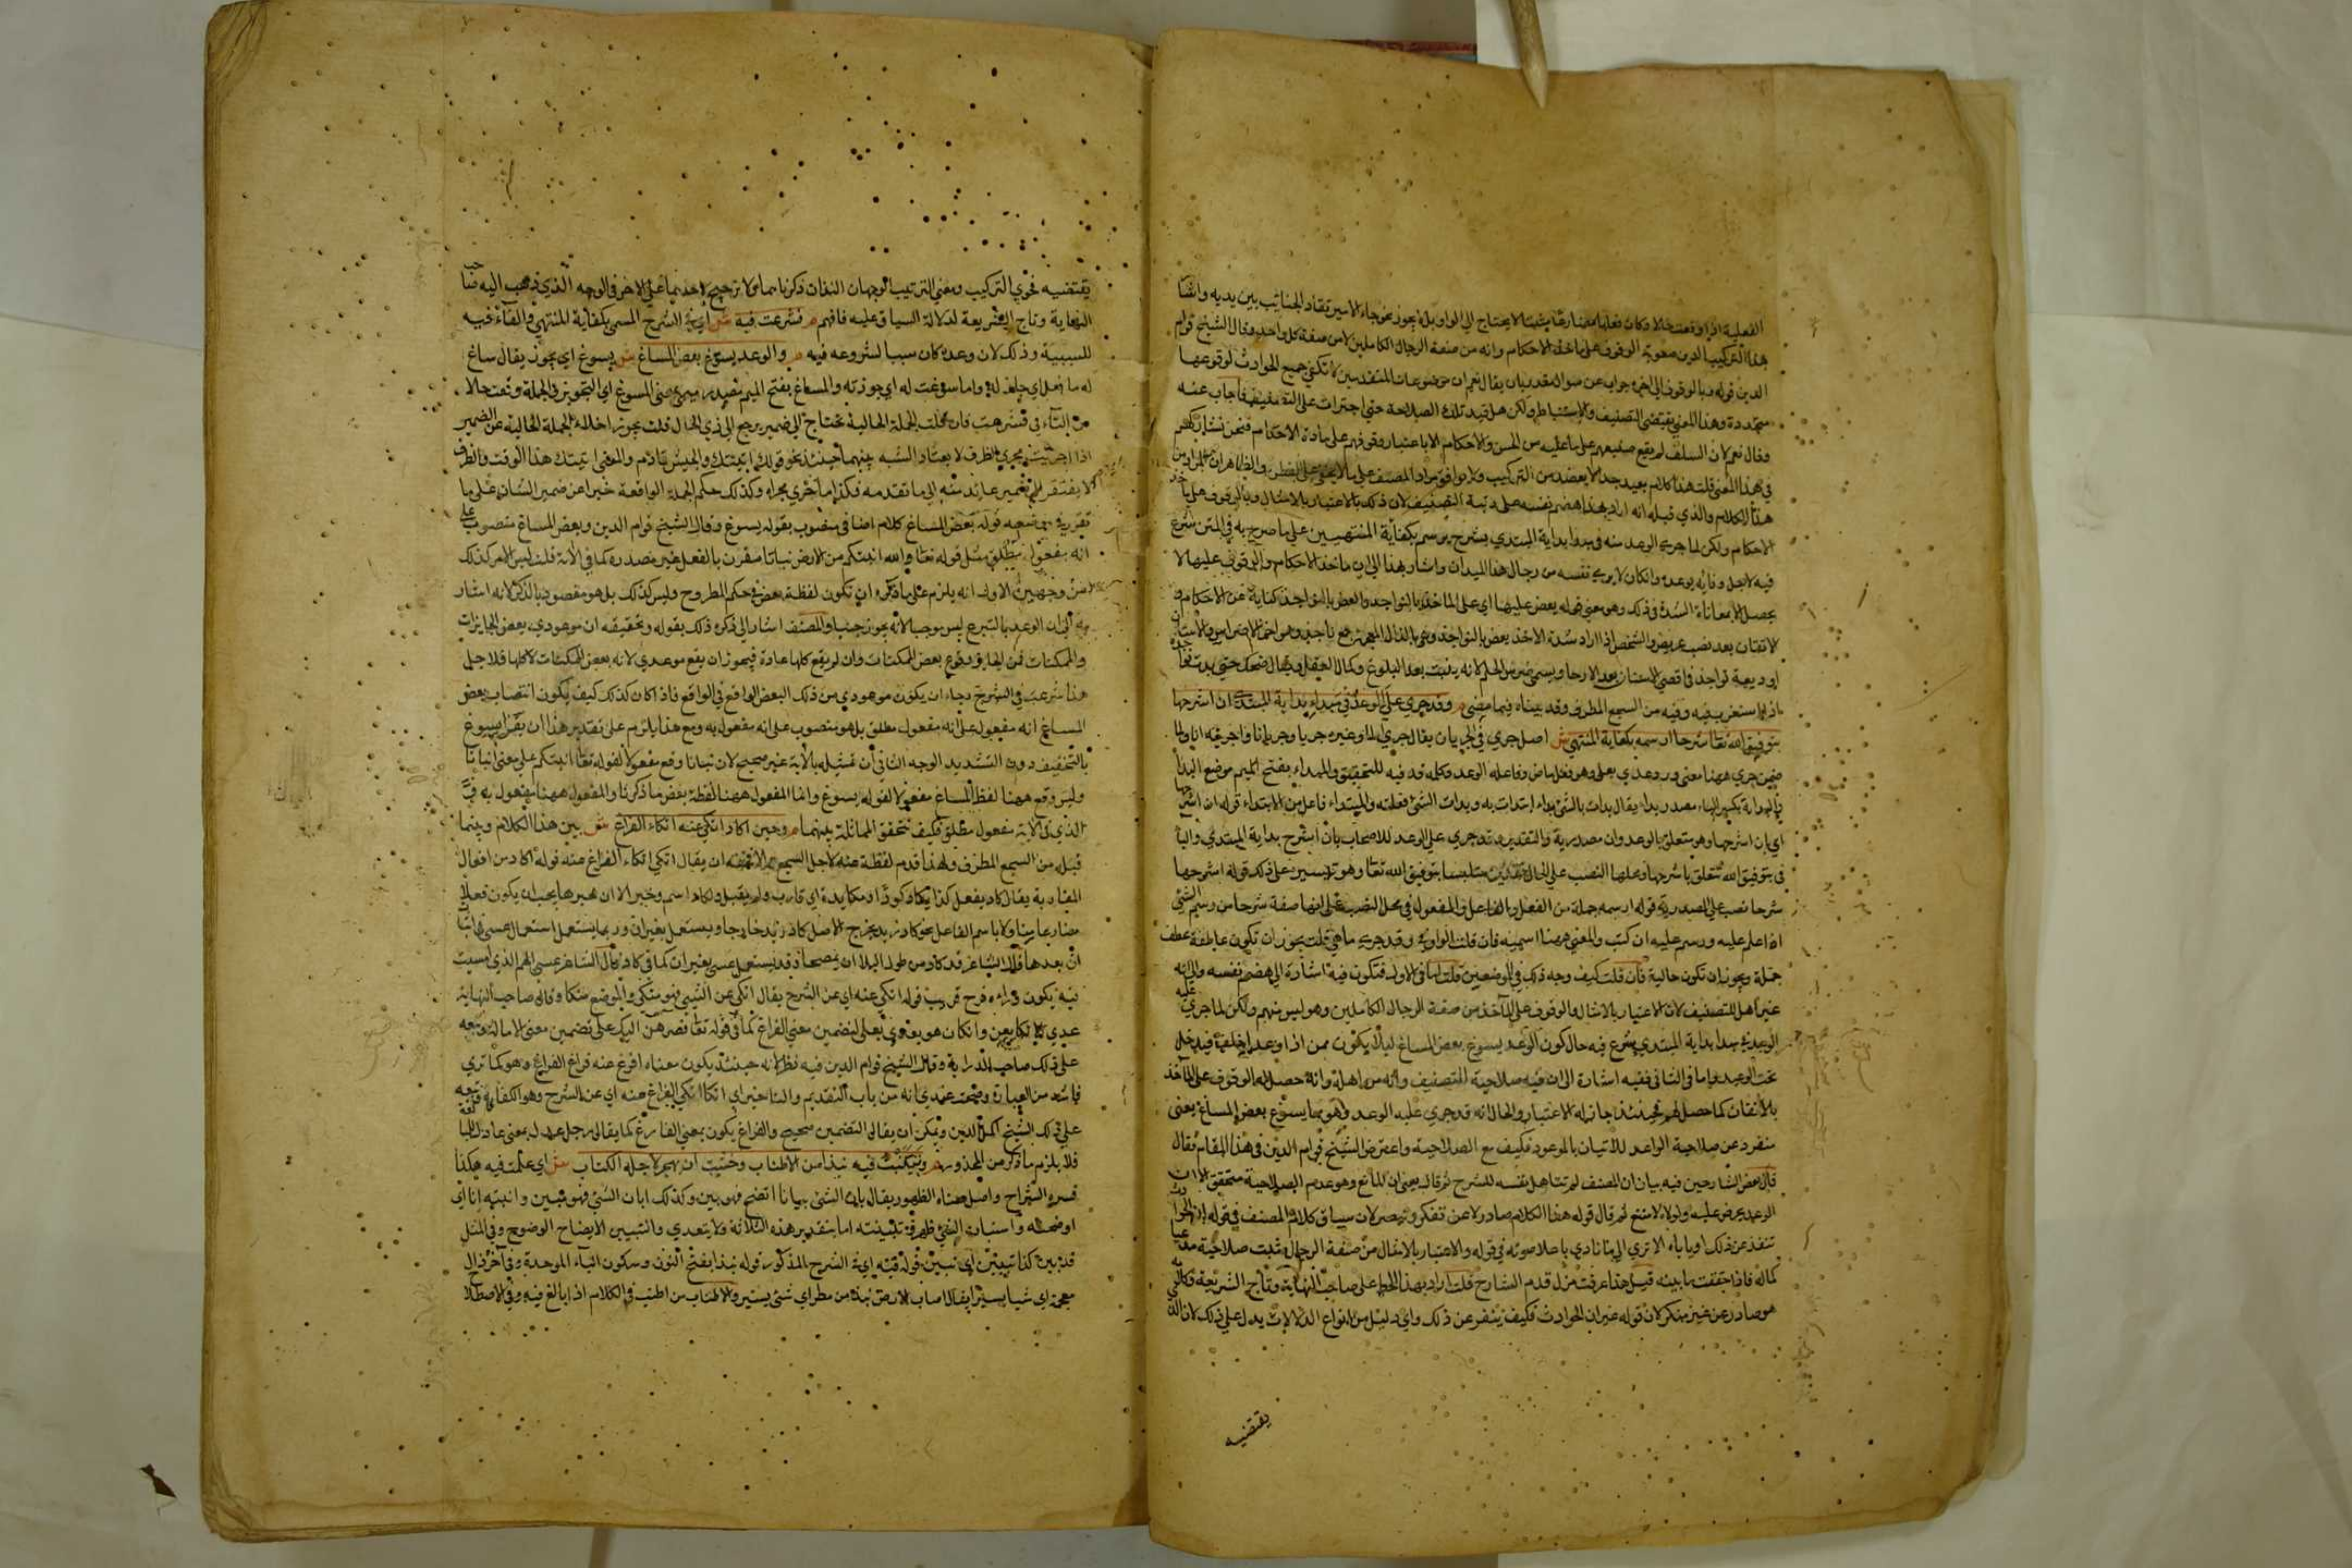 الفعلية اذا وقعت حالا وكان فعلها مضارعا مثبتا لا يحتاج الى الواو بل لا يجوز نحو جاء الامير تقاد الجنائب بين يديه وايضا
هذا التركيب الدين صعوبة الوقوف على ماخذ الاحكام وانه من صنعة الرجال الكاملين لا من صنعة كل واحد وقال الشيخ قوام
الدين قوله وبالوقوف الى اخره جواب عن سوال مقدر بان يقال نعم ان موضوعات المتقدمين لا تكفي جميع الحوادث لوقوعها
متجددة وهذا المعنى يقتضي التصنيف والاستنباط ولكن هل فيك تلك الصلاحية حتى اجترات على التصنيف فاجاب عنه
وقال نعم لان السلف لم يقع صنيعهم على ما عليه من الحسن والاحكام الا باعتبار وقوفهم على مادة الاحكام فنحن نشاركهم
في هذا المعنى قلت هذا كلام بعيد جدا لا يعضده من التركيب ولا يوافق مراد المصنف على ما لا يخفى على الفطن والظاهر ان المراد من
هذا الكلام والذي قبله انه اراد بهذا هضم نفسه على رتبة التصنيف لان ذلك بالاعتبار بالامثال وبالوقوف على ماخذ
الاحكام ولكن لما جرى الوعد منه في مبدا بداية المبتدي بشرح يرسم بكفاية المنتهي على ما صرح به في المتن شرع
فيه لاجل وفائه بوعده وان كان لا يرى نفسه من رجال هذا الميدان واشار بهذا الى ان ماخذ الاحكام والوقوف عليها لا
يحصل الا بمعاناة الشدة في ذلك وهو معنى قوله يعض عليها اي على الماخذ بالنواجذ والعض بالنواجذ كناية عن الاحكام و
الاتقان بعد نصب عريض والشخص اذا اراد شدة الاخذ يعض بالنواجذ وهي بالذال المعجمة جمع ناجذ وهو اخر الاضراس وللانسان
اربعة نواجذ في اقصى الاسنان بعد الارحاء ويسمى ضرس الحلم لانه ينبت بعد البلوغ وكمال العقل ويقال ضحك حتى بدت نواجذه
اذا استغرب فيه وفيه من السجع المطرف وقد بيناه فيما مضى م وقد جرى علي الوعد في مبداء بداية المبتدي ان اشرحها
بتوفيق الله تعا شرحا ارسمه بكفاية المنتهي ش اصل جرى في الجريان يقال جرى الماء وغيره جريا وجريانا واجريته انا ولما
ضمن جرى ههنا معنى ورد عدي بعلى وهو فعل ماض وفاعله الوعد وكلمة قد فيه للتحقيق والمبداء بفتح الميم موضع البدا
والبداية بكسر الباء مصدر بداء يقال بدات بالشي بداء ابتدات به وبدات الشي فعلته والمبتداء فاعل من الابتداء قوله ان اشرحها
اي بان اشرحها وهو متعلق بالوعد وان مصدرية والتقدير وقد جرى علي الوعد للاصحاب بان اشرح بداية المبتدي والبا
في بتوفيق الله تتعلق باشرحها ومحلها النصب على الحال تقديره متلبسا بتوفيق الله تعا وهو تيسيره على ذلك قوله اشرحها
شرحا نصب على المصدرية قوله ارسمه جملة من الفعل والفاعل والمفعول في محل النصب على انها صفة شرحا من رسم الشي
اذا علم عليه ورسم عليه ان كتب والمعنى ههنا اسميه فان قلت الواو في وقد جرى ما هي قلت يجوز ان تكون عاطفة عطف
جملة ويجوز ان تكون حالية فان قلت كيف وجه ذلك في الموضعين قلت اما في الاول فتكون فيه اشارة الى هضم نفسه والى انه
غير اهل للتصنيف لان الاعتبار بالامثال والوقوف على الماخذ من صفة الرجال الكاملين وهو ليس منهم ولكن لما جرى عليه
الوعد في مبدا بداية المبتدي شرع فيه حال كون الوعد يسوغ بعض المساغ ليلا يكون ممن اذا وعد اخلف فيدخل
تحت الوعيد واما في الثاني ففيه اشارة الى ان فيه صلاحية التصنيف وانه من اهله وانه حصل له الوقوف على الماخذ
بالاتقان كما حصل لهم فحينئذ جاز له الاعتبار والحال انه قد جرى عليه الوعد وهو مما يسوغ بعض المساغ يعنى
منفرد عن صلاحية الواعد للاتيان بالموعود فكيف مع الصلاحية واعترض الشيخ قوام الدين في هذا المقام فقال
قال بعض الشارحين فيه بيان ان المصنف لم تتاهل نفسه للشرح ثم قال يعني ان المانع وهو عدم الصلاحية متحقق الا ان
الوعد يحرض عليه ولولاه لامتنع ثم قال قوله هذا الكلام صادر لا عن تفكر وتبصر لان سياق كلام المصنف في قوله
تنفذ عن ذلك اوياباه الا ترى الى ما نادى باعلا صوته في قوله والاعتبار بالامثال من صنعة الرجال وثبت صلاحية
كماله فاذا تحققت ما بينه قبل هذا عرفت مزل قدم الشارح قلت اراد بهذا الحط على صاحب النهاية وتاج الشريعة فكلام
هو صادر عن غير منكر لان قوله غير ان الحوادث فكيف ينفر عن ذلك واي دليل من انواع الدلالات يدل على ذلك لان الذي
يقتضيه
يقتضيه فحوى التركيب ومعنى الترتيب الوجهان اللذان ذكرناهما من لا ترجيح لاحدهما على الاخر في الوجه الذي ذهب اليه صاحب
النهاية وتاج الشريعة لدلالة السياق عليه فافهم م فشرعت فيه ش اي في الشرح المسمى بكفاية المنتهي والفاء فيه
للسببية وذلك لان وعده كان سببا لشروعه فيه م والوعد يسوغ بعض المساغ ش يسوغ اي يجوز يقال ساغ
له ما فعل اي جاز له وانا سوغت له اي جوزته والمساغ بفتح الميم مصدر ميمي بمعنى المسوغ اي التجويز في الجملة وقعت حالا
من التاء في فشرعت فان قلت الجملة الحالية تحتاج الى ضمير يرجع الى ذي الحال قلت يجوز اخلاء الجملة الحالية عن الضمير
اذا اجريت مجرى الظرف لانعقاد الشبه بينهما حينئذ نحو قولك اتيتك والجيش قادم والمعنى اتيتك هذا الوقت والظرف
لا يفتقر الى ضمير عائد منه الى ما تقدمه فكذا ما اجري مجراه وكذلك حكم الجملة الواقعة خبرا عن ضمير الشان على ما
تقرر في موضعه قوله بعض المساغ كلام اضافي منصوب بقوله يسوغ وقال الشيخ قوام الدين وبعض المساغ منصوب على
انه مفعول مطلق مثل قوله تعا والله انبتكم من الارض نباتا مقرن بالفعل غير مصدره كما في الاية قلت ليس الامر كذلك
من وجهين الاول انه يلزم على ما ذكره ان تكون لفظة بعض في حكم المطروح وليس كذلك بل هو مقصود بالذكر لانه اشار
به الى ان الوعد بالتبرع ليس موجبا لانه يجوز والمصنف اشار الى ذكره ذلك بقوله وتحقيقه ان موعودي بعض الجايزات
والممكنات فمن الجايز وقوع بعض الممكنات وان لم يقع كلها عادة فيجوز ان يقع موعدي لانه بعض الممكنات لا كلها فلاجل
هذا شرعت في الشرح رجاء ان يكون موعودي من ذلك البعض الواقع في الواقع فاذا كان كذلك كيف يكون انتصاب بعض
المساغ على انه مفعول مطلق بل هو منصوب على انه مفعول به ومع هذا يلزم على تقدير هذا ان يقرا يسوغ
بالتخفيف دون التشديد الوجه الثاني ان تمثيله بالاية غير صحيح لان نباتا وقع مفعولا لقوله تعا انبتكم على معنى انباتا
وليس وقع ههنا لفظ المساغ مفعولا لقوله يسوغ وانما المفعول ههنا لفظة بعض ما ذكرنا والمفعول ههنا مفعول به و
الذي في الاية مفعول مطلق فكيف تتحقق المماثلة بينهما م وحين اكاد اتكئ عنه اتكاء الفراغ ش بين هذا الكلام وبينما
قبله من السجع المطرف ولهذا قدم لفظة عنه لاجل السجع والا فحقه ان يقال اتكئ اتكاء الفراغ عنه قوله اكاد من افعال
المقاربة يقال كاد يفعل كذا يكاد كودا ومكايدة اي قارب ولم يفعل ولكاد اسم وخبر الا ان خبرها يجب ان يكون فعلا
مضارعا متاولا باسم الفاعل نحو كاد زيد يخرج الاصل كاد زيد خارجا ويستعمل بغير ان وربما يستعمل استعمال عسى باثبات
ان بعدها قال الشاعر قد كاد من طول البلا ان يمصحا وقد يستعمل عسى بغير ان كما في كاد وقال الشاعر عسى الهم الذي امسيت
فيه يكون وراءه فرج قريب قوله اتكئ عنه اي عن الشرح يقال اتكئ عن الشي فهو متكئ والموضع متكا وقال صاحب النهاية
عدي الاتكا بعن وان كان هو يعدى بعلى لتضمين معنى الفراغ كما في قوله تعا فصرهن اليك على تضمين معنى الامالة وتبعه
على ذلك صاحب الدراية وقال الشيخ قوام الدين فيه نظر لانه حينئذ يكون معناه افرغ عنه فراغ الفراغ وهو كما ترى
فاسد من العبارة وصحته عندي انه من باب التقديم والتاخير اي اتكا اتكئ الفراغ عنه اي عن الشرح وهو الكفاية وتبعه
على ذلك الشيخ اكمل الدين ويمكن ان يقال التضمين صحيح والفراغ يكون بمعنى الفارغ كما يقال رجل عدل بمعنى عادل
فلا يلزم ما ذكر من المحذور م وتبينت فيه نبذا من الاطناب وخشيت ان يهجر لاجله الكتاب ش اي علمت فيه هكذا
فسره الشراح واصل معناه الظهور يقال بان الشي بيانا اتضح فهو بين وكذلك ابان الشي فهو مبين وابنته انا اي
اوضحته واستبان الشي ظهر وتبينته اما بتقدير هذه الثلاثة ولا يتعدي والتبيين الايضاح الوضوح وفي المثل
قد بين كذا تبيين اي تبين قوله فيه اي في الشرح المذكور قوله نبذا بفتح النون وسكون الباء الموحدة وفي اخره ذال
معجمة اي شيا يسيرا يقال اصاب الارض نبذ من مطر اي شي يسير والاطناب من اطنب في الكلام اذا بالغ فيه وفي الاصطلا